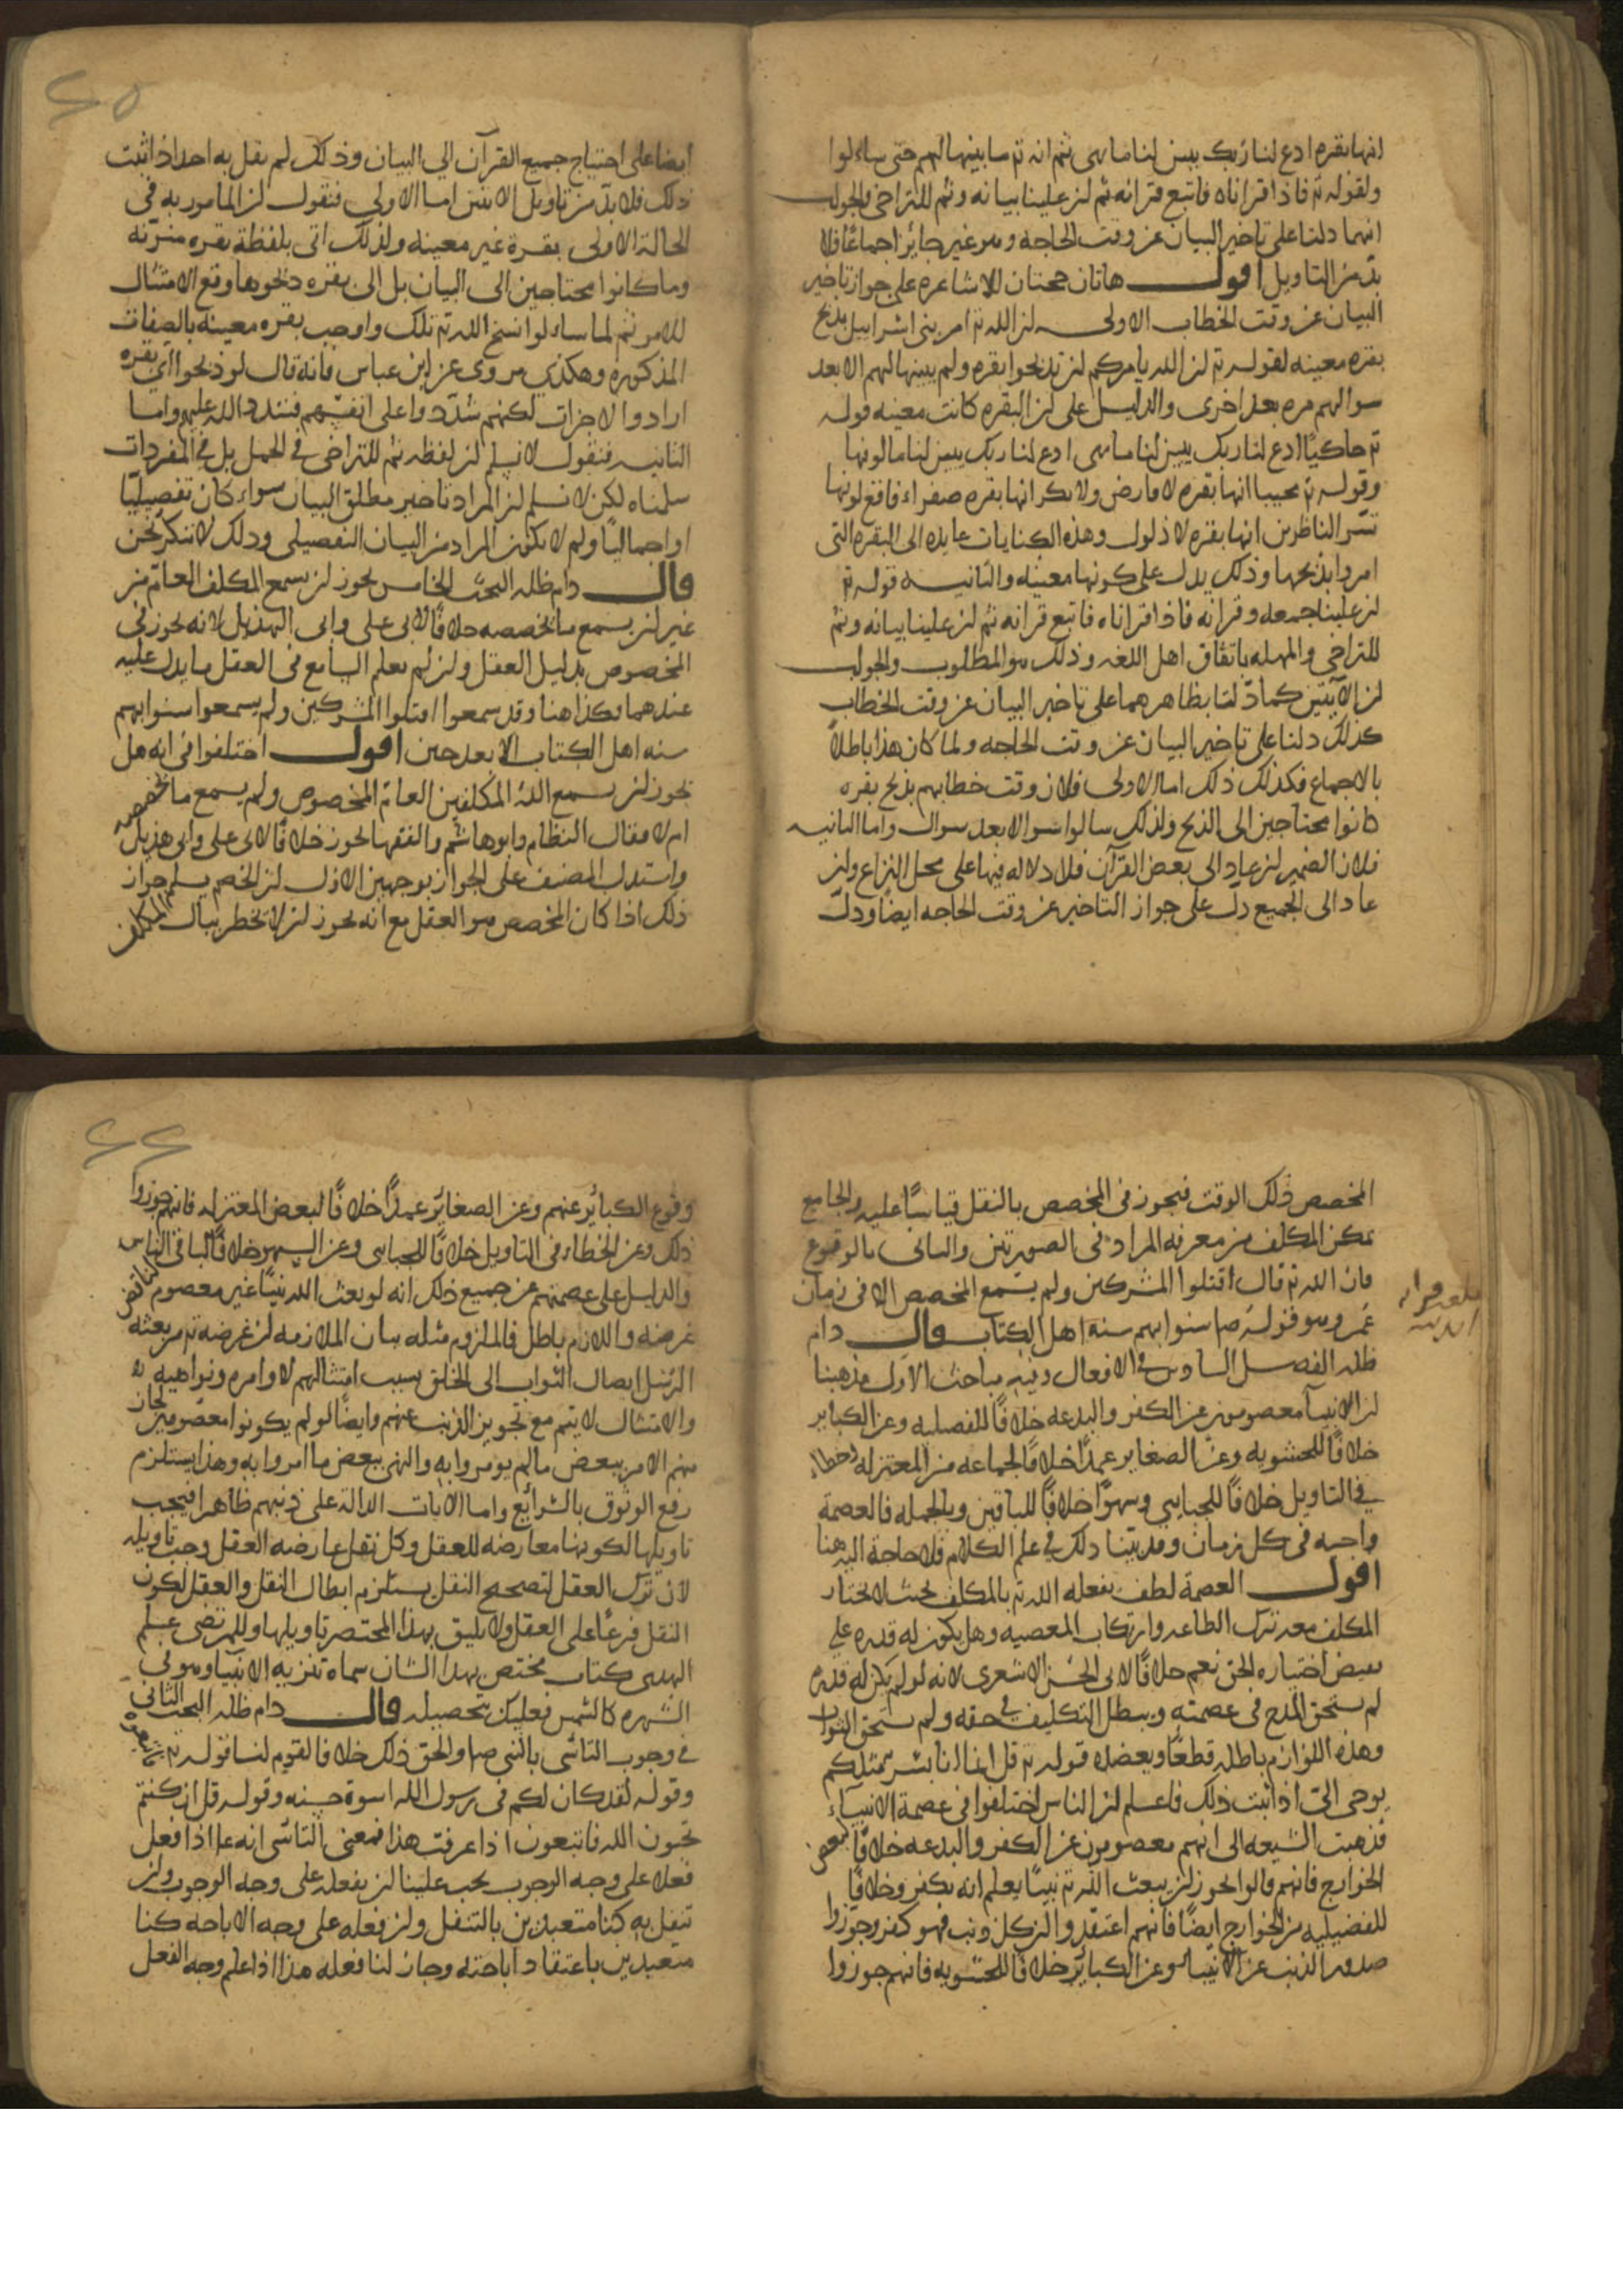 انها بقره ادع لنا ربك يبين لنا ما هى ثم انه تع ما بينها لهم حتى ساءلوا
ولقوله تع فاذا قراناه فاتبع قرانه ثم ان علينا بيانه وثم للتراخى والجواب
انهما دلتا على تاخير البيان عن وقت الحاجه وهو غير جائز اجماعًا فلا
بد من التاويل اقول هاتان حجتان للاشاعره على جواز تاخير
البيان عن وقت الخطاب الاولى ان الله تع امر بنى اسراييل بذبح
بقره معينه لقوله تع ان الله يامركم ان تذبحوا بقره ولم يبينها لهم الا بعد
سوالهم مره بعد اخرى والدليل على ان البقره كانت معينه قوله
تع حاكيًا ادع لنا ربك يبين لنا ما هى ادع لنا ربك يبين لنا ما لونها
وقوله تع مجيبا انها بقره لا فارض ولا بكر انها بقره صفراء فاقع لونها
تسر الناظرين انها بقره لا ذلول وهذه الكنايات عايده الى البقره التى
امروا بذبحها وذلك يدل على كونها معينه والثانيه قوله تع
ان علينا جمعه وقرانه فاذا قراناه فاتبع قرانه ثم ان علينا بيانه وثم
للتراخى والمهله باتفاق اهل اللغه وذلك هو المطلوب والجواب
ان الآيتين كما دلتا بظاهرهما على تاخير البيان عن وقت الخطاب
كذلك دلتا على تاخير البيان عن وقت الحاجه ولما كان هذا باطلاً
بالاجماع فكذلك ذلك اما الاولى فلان وقت خطابهم بذبح بقره
كانوا محتاجين الى الذبح ولذلك سالوا سوالا بعد سوال واما الثانيه
فلان الضمير ان عاد الى بعض القرآن فلا دلاله فيها على محل النزاع وان
عاد الى الجميع دل على جواز التاخير عن وقت الحاجه ايضًا ودل
٢٥
ايضا على احتياج جميع القرآن الى البيان وذلك لم يقل به احد اذا ثبت
ذلك فلا بد من تاويل الايتين اما الاولى فنقول ان المامور به فى
الحالة الاولى بقرة غير معينه ولذلك اتى بلفظة بقره منونه
وما كانوا محتاجين الى البيان بل الى بقره ذبحوها وقع الامتثال
للامر ثم لما ساءلوا نسخ الله تع تلك واوجب بقره معينه بالصفات
المذكوره وهكذى مروى عن ابن عباس فانه قال لو ذبحوا اى بقره
ارادوا لاجزات لكنهم شددوا على انفسهم فشدد الله عليهم واما
الثانيه فنقول لا نسلم ان لفظه ثم للتراخى فى الجمل بل فى المفردات
سلمناه لكن لا نسلم ان المراد تاخير مطلق البيان سواء كان تفصيليًا
او اجماليًا ولم لا يكون المراد من البيان التفصيلى وذلك لا ننكر نحن
قال دام ظله البحث الخامس يجوز ان يسمع المكلف العام من
غير ان يسمع ما يخصصه خلافًا لابى على وابى الهذيل لانه يجوز فى
المخصوص بدليل العقل وان لم يعلم السامع فى العقل ما يدل عليه
عندهما فكذا هنا وقد سمعوا اقتلوا المشركين ولم يسمعوا سنوا بهم
سنه اهل الكتاب الا بعد حين اقول اختلفوا فى انه هل
يجوز ان يسمع الله المكلفين العام المخصوص ولم يسمع ما يخصصه
ام لا فقال النظام وابو هاشم والفقها يجوز خلافًا لابى على وابى هذيل
واستدل المصنف على الجواز بوجهين الاول ان الخصم يسلم جواز
ذلك اذا كان المخصص هو العقل مع انه يجوز ان لا يخطر ببال المكلف
المخصص ذلك الوقت فيجوز فى المخصص بالنقل قياسًا عليه والجامع
تمكن المكلف من معرفه المراد فى الصورتين والثانى بالوقوع
فان الله تع قال اقتلوا المشركين ولم يسمع المخصص الا فى زمان
عمر وهو قوله ص سنوا بهم سنه اهل الكتاب قال دام
ظله الفصل السادس فى الافعال وفيه مباحث الاول مذهبنا
ان الانبيآ معصومون عن الكفر والبدعه خلافًا للفصليه وعن الكباير
خلافًا للحشويه وعن الصغاير عمدًا خلافًا لجماعه من المعتزله وخطاء
فى التاويل خلافًا للجبايى وسهوًا خلافًا للباقين وبالجمله فالعصمة
واجبه فى كل زمان وقد بيّنا ذلك فى علم الكلام فلا حاجة اليه هنا
اقول العصمة لطف يفعله الله تع بالمكلف بحيث لا يختار
المكلف معه ترك الطاعه وارتكاب المعصيه وهل يكون له قدره على
نقيض اختياره الحق نعم خلافًا لابى الحسن الاشعرى لانه لو لم يكن له قدره
لم يستحق المدح فى عصمته وبطل التكليف فى حقه ولم يستحق الثواب
وهذه اللوازم باطله قطعًا ويعضده قوله تع قل انما انا بشر مثلكم
يوحى الىّ اذا ثبت ذلك فاعلم ان الناس اختلفوا فى عصمة الانبيآء
فذهبت الشيعه الى انهم معصومون عن الكفر والبدعه خلافًا لبعض
الخوارج فانهم قالوا يجوز ان يبعث الله تع نبيًا يعلم انه يكفر وخلافًا
للفضيليه من الخوارج ايضًا فانهم اعتقدوا ان كل ذنب فهو كفر وجوزوا
صدور الذنب عن الانبيا وعن الكبائر خلافًا للحشويه فانهم جوزوا
٢٦
وقوع الكبائر عنهم وعن الصغائر عمدًا خلافًا لبعض المعتزله فانهم جوزوا
ذلك وعن الخطاء فى التاويل خلافًا للجبايى وعن السهو خلافًا لباقى الناس
والدليل على عصمتهم عن جميع ذلك انه لو بعث الله نبيًا غير معصوم لناقض
غرضه واللازم باطل فالملزوم مثله بيان الملازمه ان غرضه تع من بعثه
الرسل ايصال الثواب الى الخلق بسبب امتثالهم لاوامره ونواهيه
والامتثال لا يتم مع تجويز الذنب عنهم وايضًا لو لم يكونوا معصومين لجاز
منهم الامر ببعض ما لم يومروا به والنهى ببعض ما امروا به وهذا يستلزم
رفع الوثوق بالشرائع واما الايات الدالة على ذنبهم ظاهرا فيجب
تاويلها لكونها معارضه للعقل وكل نقل عارضه العقل وجب تاويله
لان ترك العقل لتصحيح النقل يستلزم ابطال النقل والعقل لكون
النقل فرعًا على العقل ولا يليق بهذا المختصر تاويلها وللمرتضى علم
الهدى كتاب مختص بهذا الشان سماه تنزيه الانبيآ وهو فى
الشهره كالشمس فعليك بتحصيله قال دام ظله البحث الثانى
فى وجوب التاسّى بالنبى ص والحق ذلك خلافا لقوم لنا قوله تع فاتبعوه
وقوله لقد كان لكم فى رسول الله اسوة حسنه وقوله قل ان كنتم
تحبون الله فاتبعون اذا عرفت هذا فمعنى التاسّى انه ع اذا فعل
فعلا على وجه الوجوب يجب علينا ان نفعله على وجه الوجوب وان
تنفل به كنا متعبدين بالتنفل وان فعله على وجه الاباحه كنا
متعبدين باعتقاد اباحته وجاز لنا فعله هذا اذا علم وجه الفعل